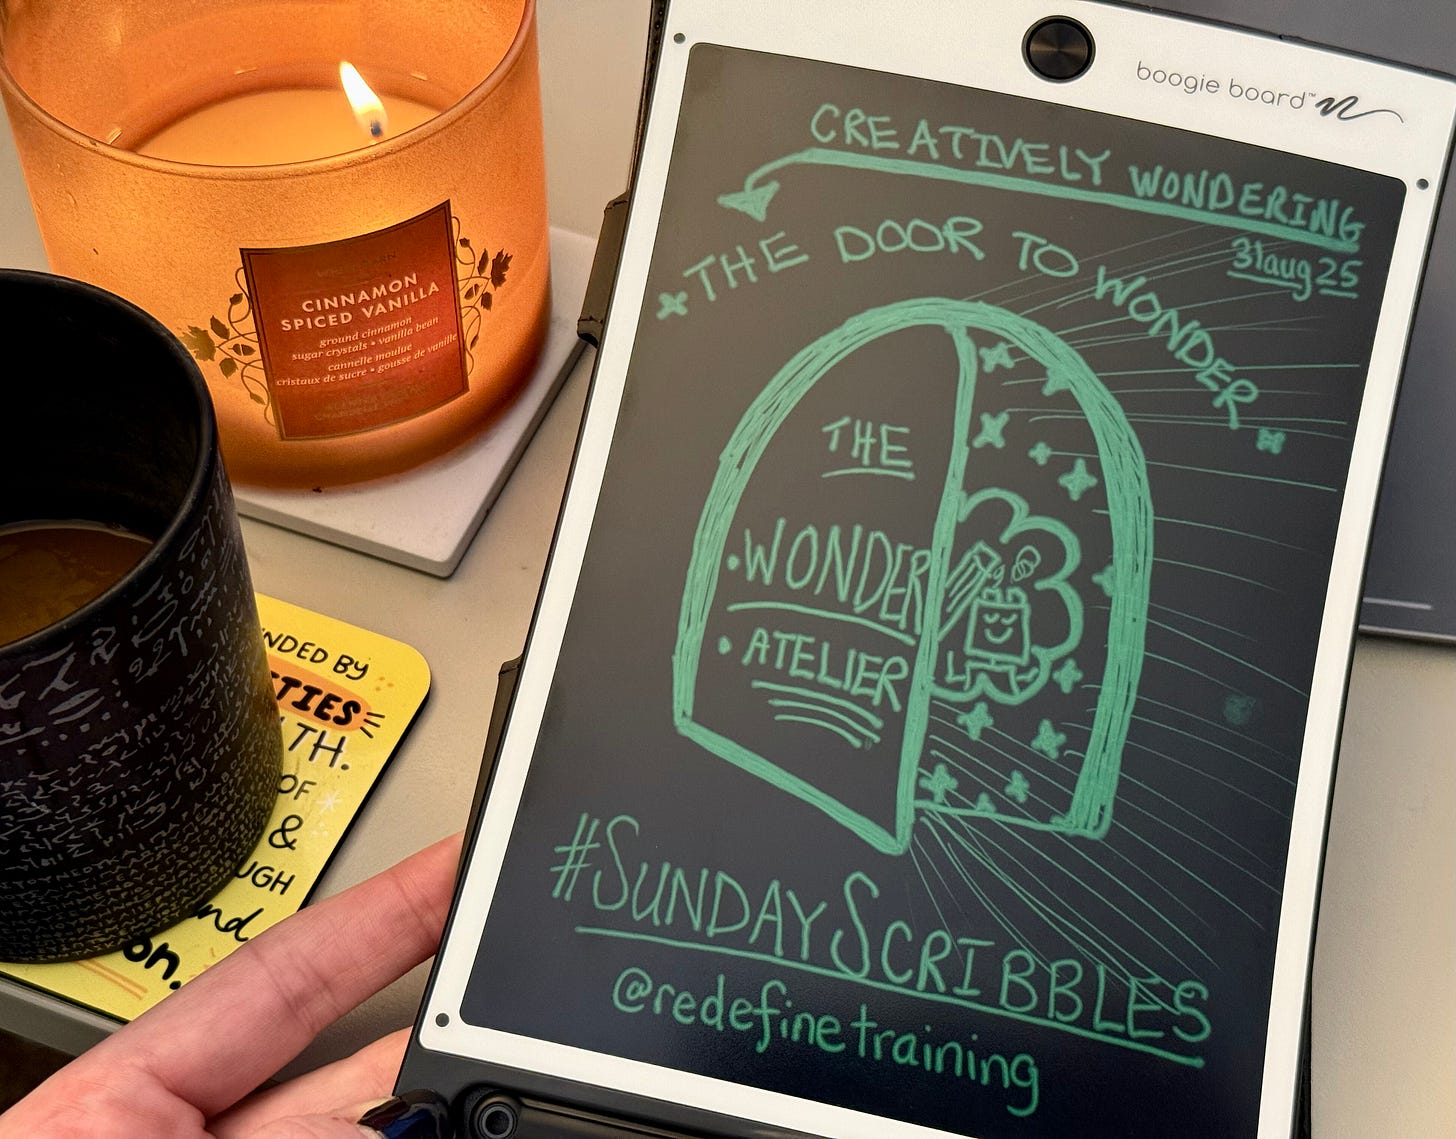 boogie board™
CREATIVELY WONDERING
31aug25
THE DOOR TO WONDER
THE
•WONDER
•ATELIER
#SUNDAYSCRIBBLES
@redefinetraining
CINNAMON
SPICED VANILLA
ground cinnamon
sugar crystals • vanilla bean
cannelle moulue
cristaux de sucre • gousse de vanille
NDED BY
TIES
TH.
OF
&
UGH
and
on.